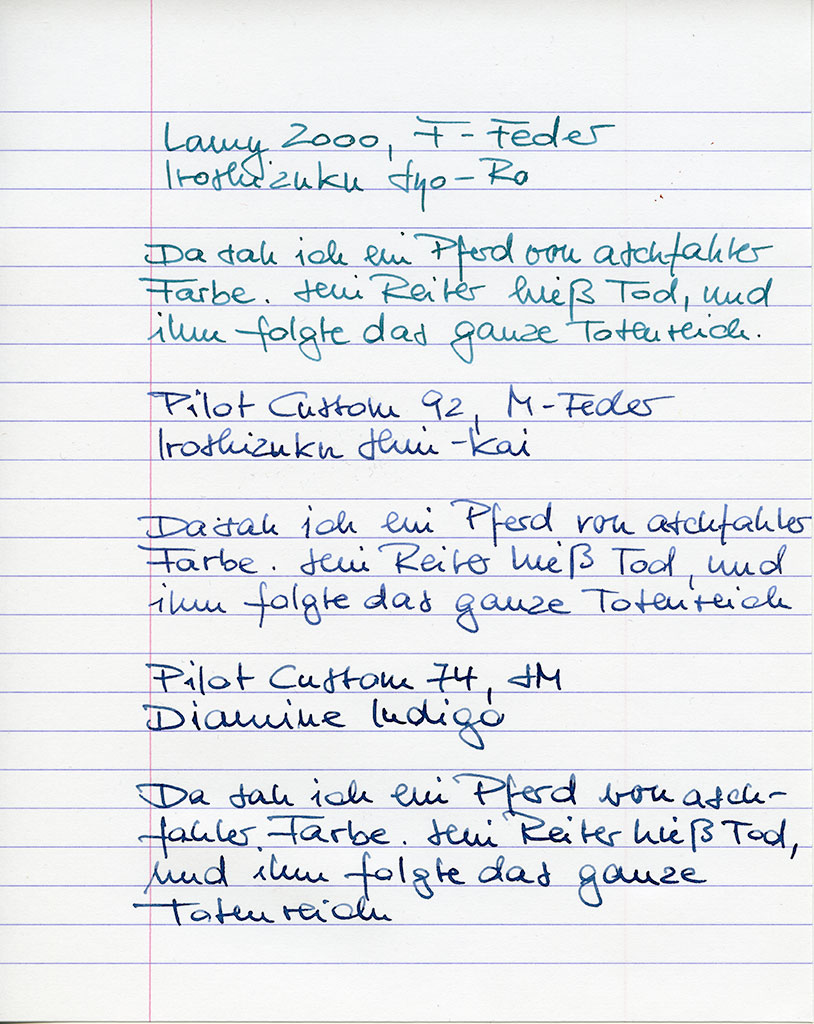 Lamy 2000, F-Feder
Iroshizuku Syo-Ro
Da sah ich ein Pferd von aschfahler
Farbe. Sein Reiter hieß Tod, und
ihm folgte das ganze Totenreich.
Pilot Custom 92, M-Feder
Iroshizuku Shin-Kai
Da sah ich ein Pferd von aschfahler
Farbe. Sein Reiter hieß Tod, und
ihm folgte das ganze Totenreich
Pilot Custom 74, SM
Diamine Indigo
Da sah ich ein Pferd von asch-
fahler Farbe. Sein Reiter hieß Tod,
und ihm folgte das ganze
Totenreich